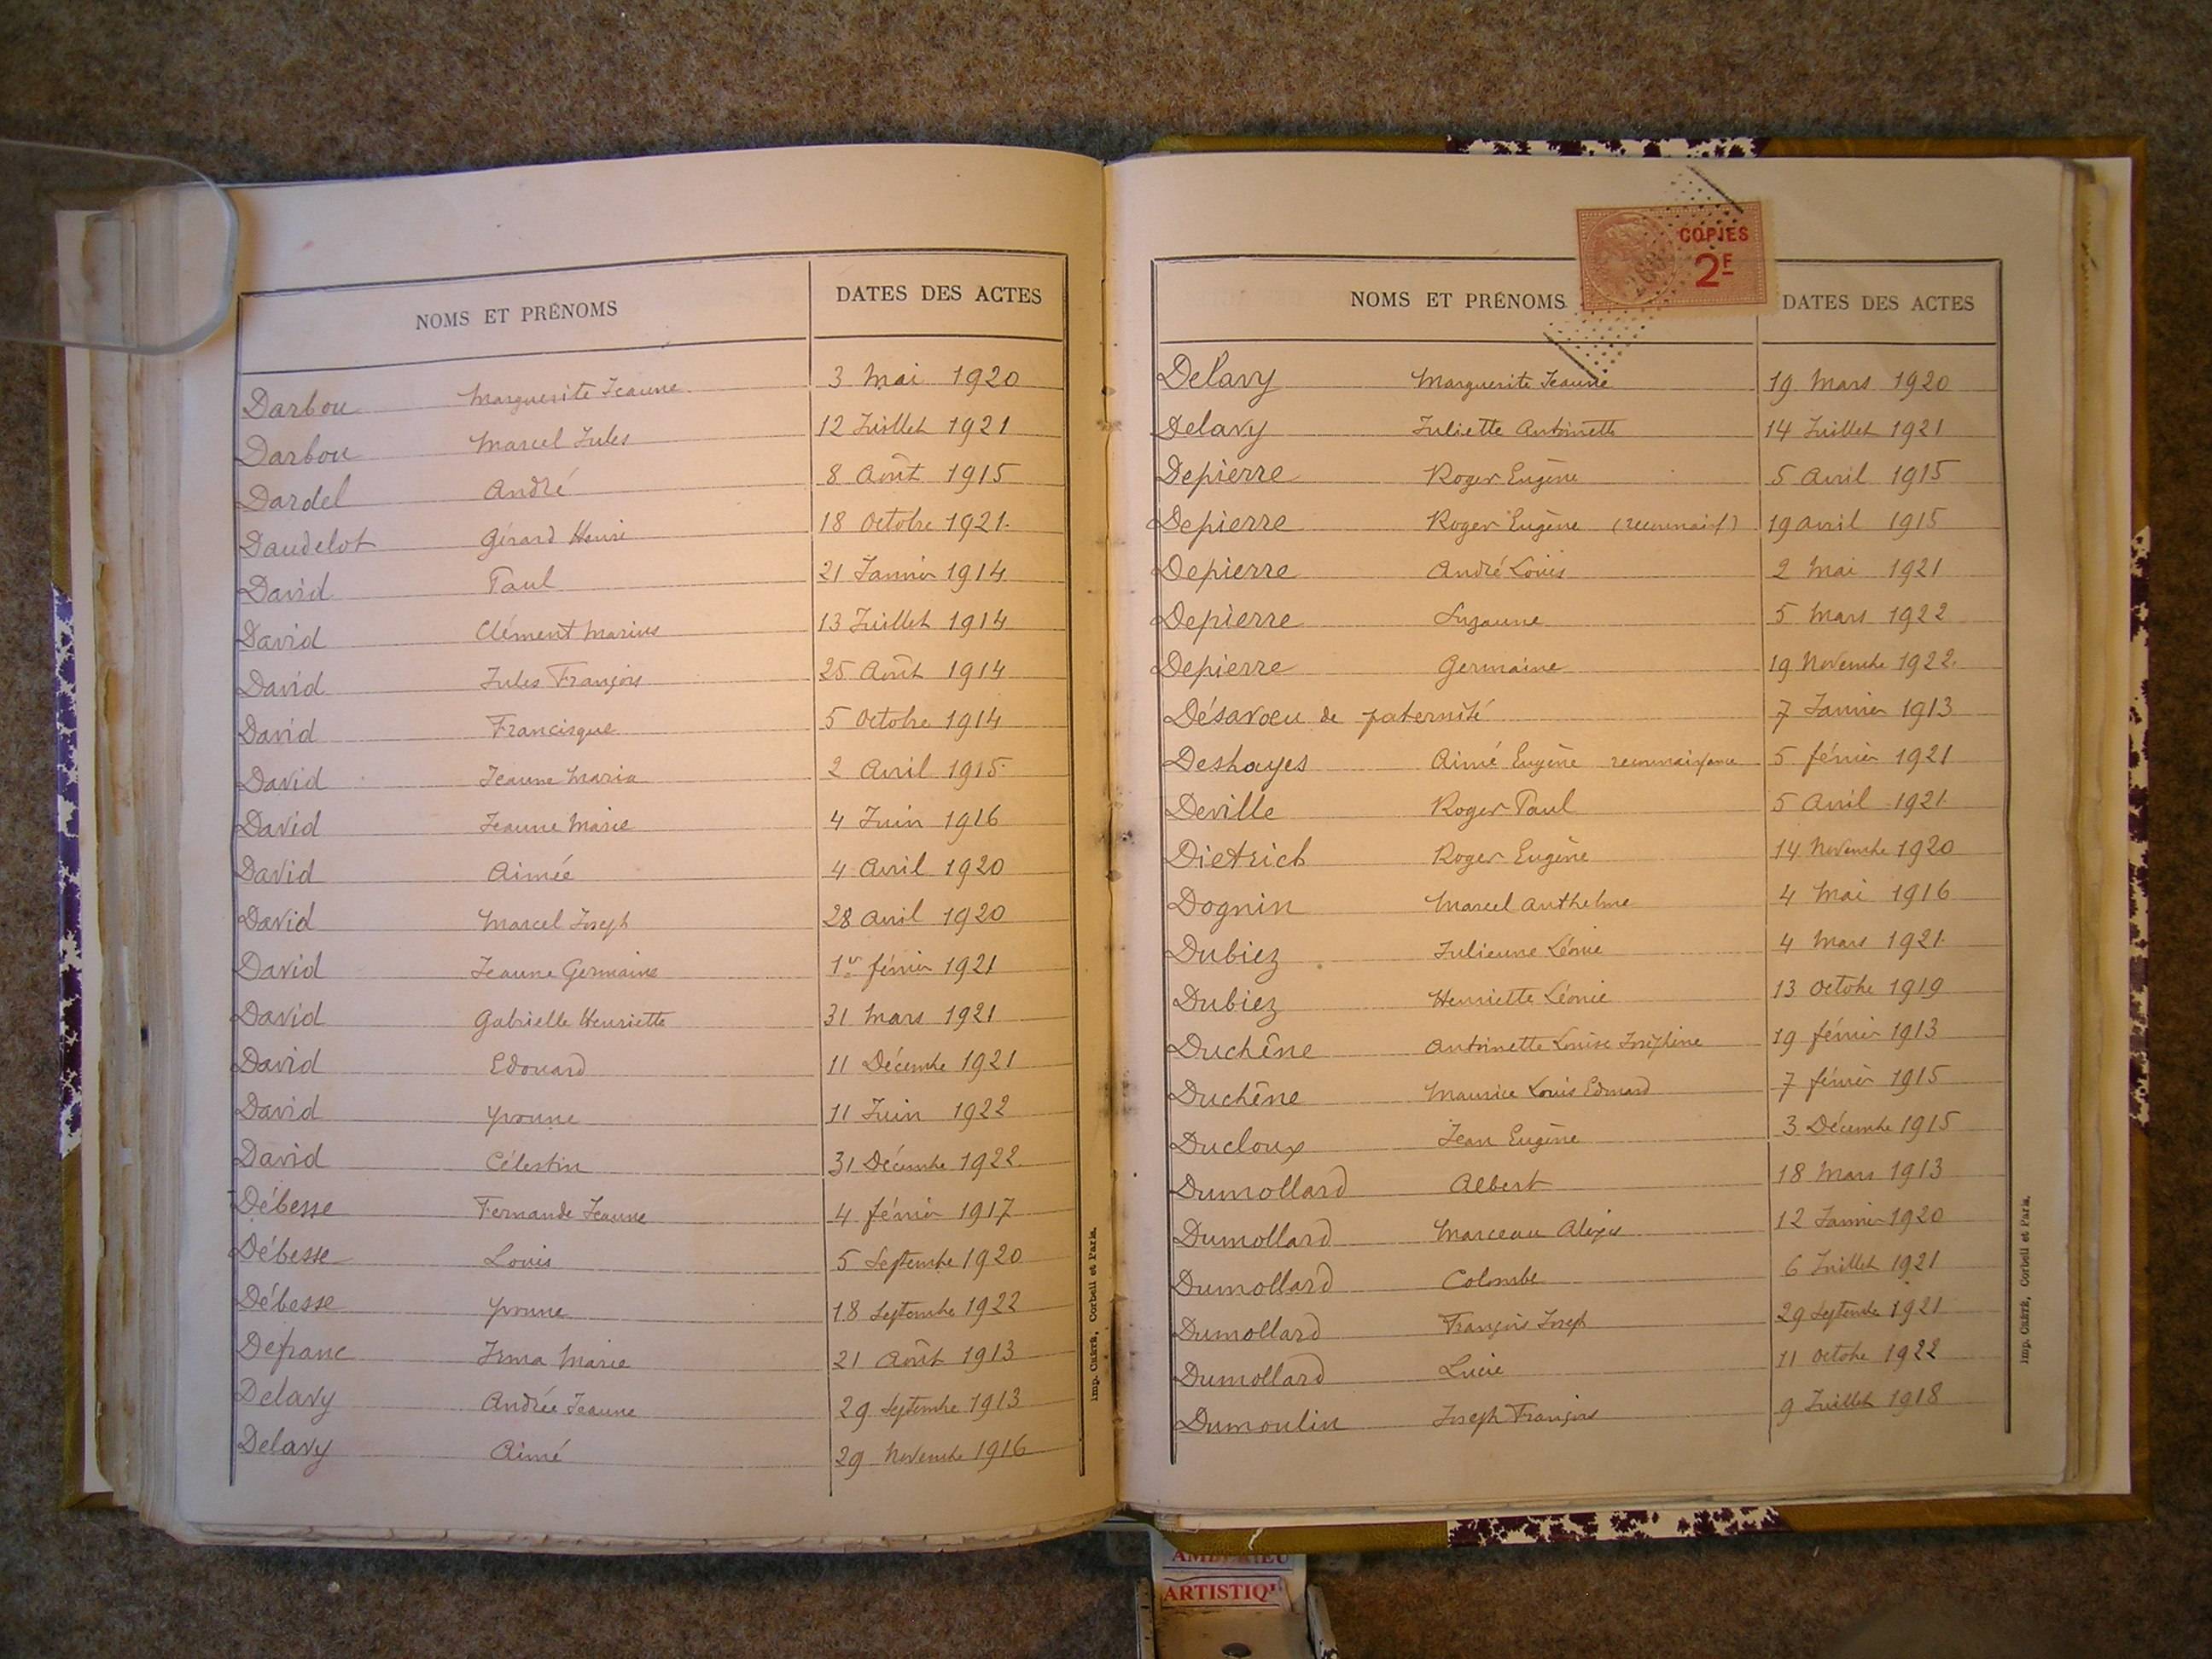 NOMS ET PRÉNOMS DATES DES ACTES
Darbou Marguerite Jeanne 3 Mai 1920
Darbou Marcel Jules 12 Juillet 1921
Dardel André 8 Août 1915
Daudelot Gérard Henri 18 Octobre 1921
David Paul 21 Janvier 1914
David Clément Marius 13 Juillet 1914
David Jules François 25 Août 1914
David Francisque 5 Octobre 1914
David Jeanne Maria 2 Avril 1915
David Jeanne Marie 4 Juin 1916
David Aimée 4 Avril 1920
David Marcel Joseph 28 Avril 1920
David Jeanne Germaine 1er février 1921
David Gabrielle Henriette 31 Mars 1921
David Edouard 11 Décembre 1921
David Yvonne 11 Juin 1922
David Célestin 31 Décembre 1922
Débesse Fernande Jeanne 4 février 1917
Débesse Louis 5 Septembre 1920
Débesse Yvonne 18 Septembre 1922
Defranc Irma Marie 21 Août 1913
Delavy Andrée Jeanne 29 Septembre 1913
Delavy Aimé 29 Novembre 1916
Imp. Cubrà, Corbeil et Paris.
COPIES
2F
NOMS ET PRÉNOMS DATES DES ACTES
Delavy Marguerite Jeanne 19 Mars 1920
Delavy Juliette Antoinette 14 Juillet 1921
Depierre Roger Eugène 5 Avril 1915
Depierre Roger Eugène (reconnaiss) 19 avril 1915
Depierre André Louis 2 Mai 1921
Depierre Suzanne 5 Mars 1922
Depierre Germaine 19 Novembre 1922
Désaveu de paternité 7 Janvier 1913
Deshayes Aimé Eugène reconnaissance 5 février 1921
Deville Roger Paul 5 Avril 1921
Dietrich Roger Eugène 14 Novembre 1920
Dognin Marcel Anthelme 4 Mai 1916
Dubiez Julienne Léonie 4 Mars 1921
Dubiez Henriette Léonie 13 Octobre 1919
Duchêne Antoinette Louise Joséphine 19 février 1913
Duchêne Maurice Louis Edouard 7 février 1915
Ducloux Jean Eugène 3 Décembre 1915
Dumollard Albert 18 Mars 1913
Dumollard Marceau Alexis 12 Janvier 1920
Dumollard Colombe 6 Juillet 1921
Dumollard François Joseph 29 Septembre 1921
Dumollard Lucie 11 Octobre 1922
Dumoulin Joseph François 9 Juillet 1918
Imp. Cubrà, Corbeil et Paris.
ARTISTIQU